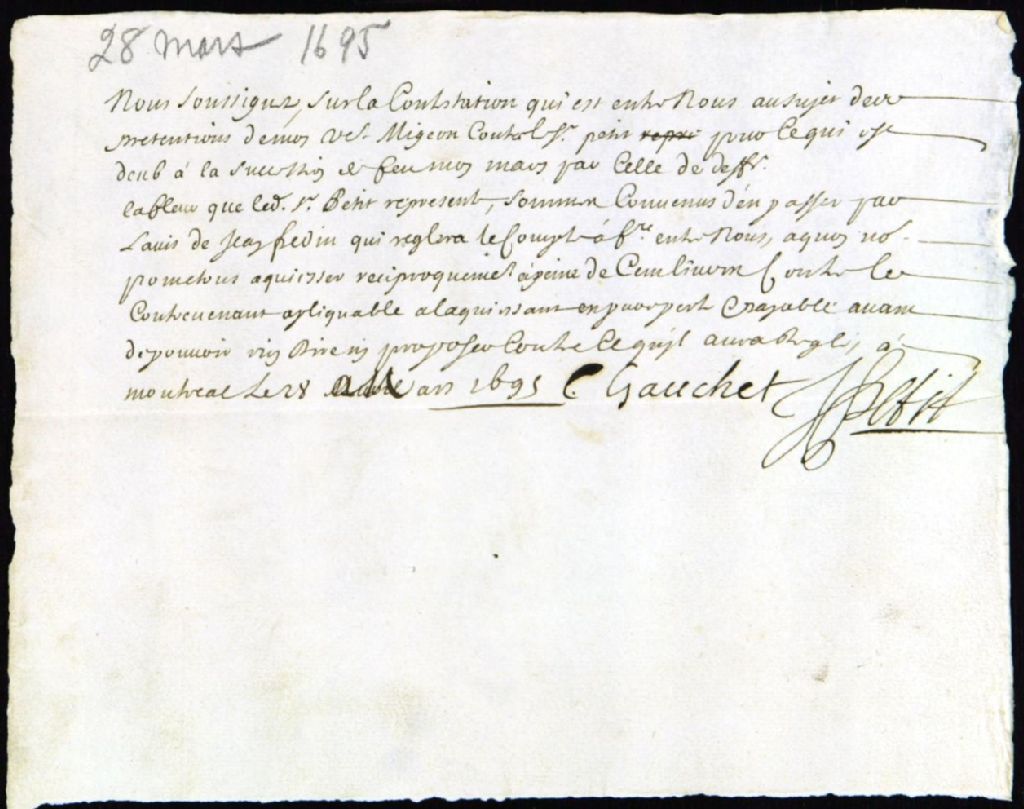 28 mars 1695
Nous soussignez, sur la Contestation qui est entre Nous au sujet des
pretentions de moy Migeon Contre le Sr. petit pour ce qui est
deub à la succession de feu mon mary par celle de deff.
que led. Sr. Petit represente, sommes Convenus d'en passer par
Lavis de qui reglera le Compte à entre Nous, a quoy no.
prometons aquiesser reciproquement à peine de Cent livres Contre le
Contrevenant apliquable a laquiessant en pure perte & payable avant
de pouvoir rien dire ny proposer Contre Ce qu'il aura Reglé, à
montreal Le 28 Mars 1695 C Gauchet Petit